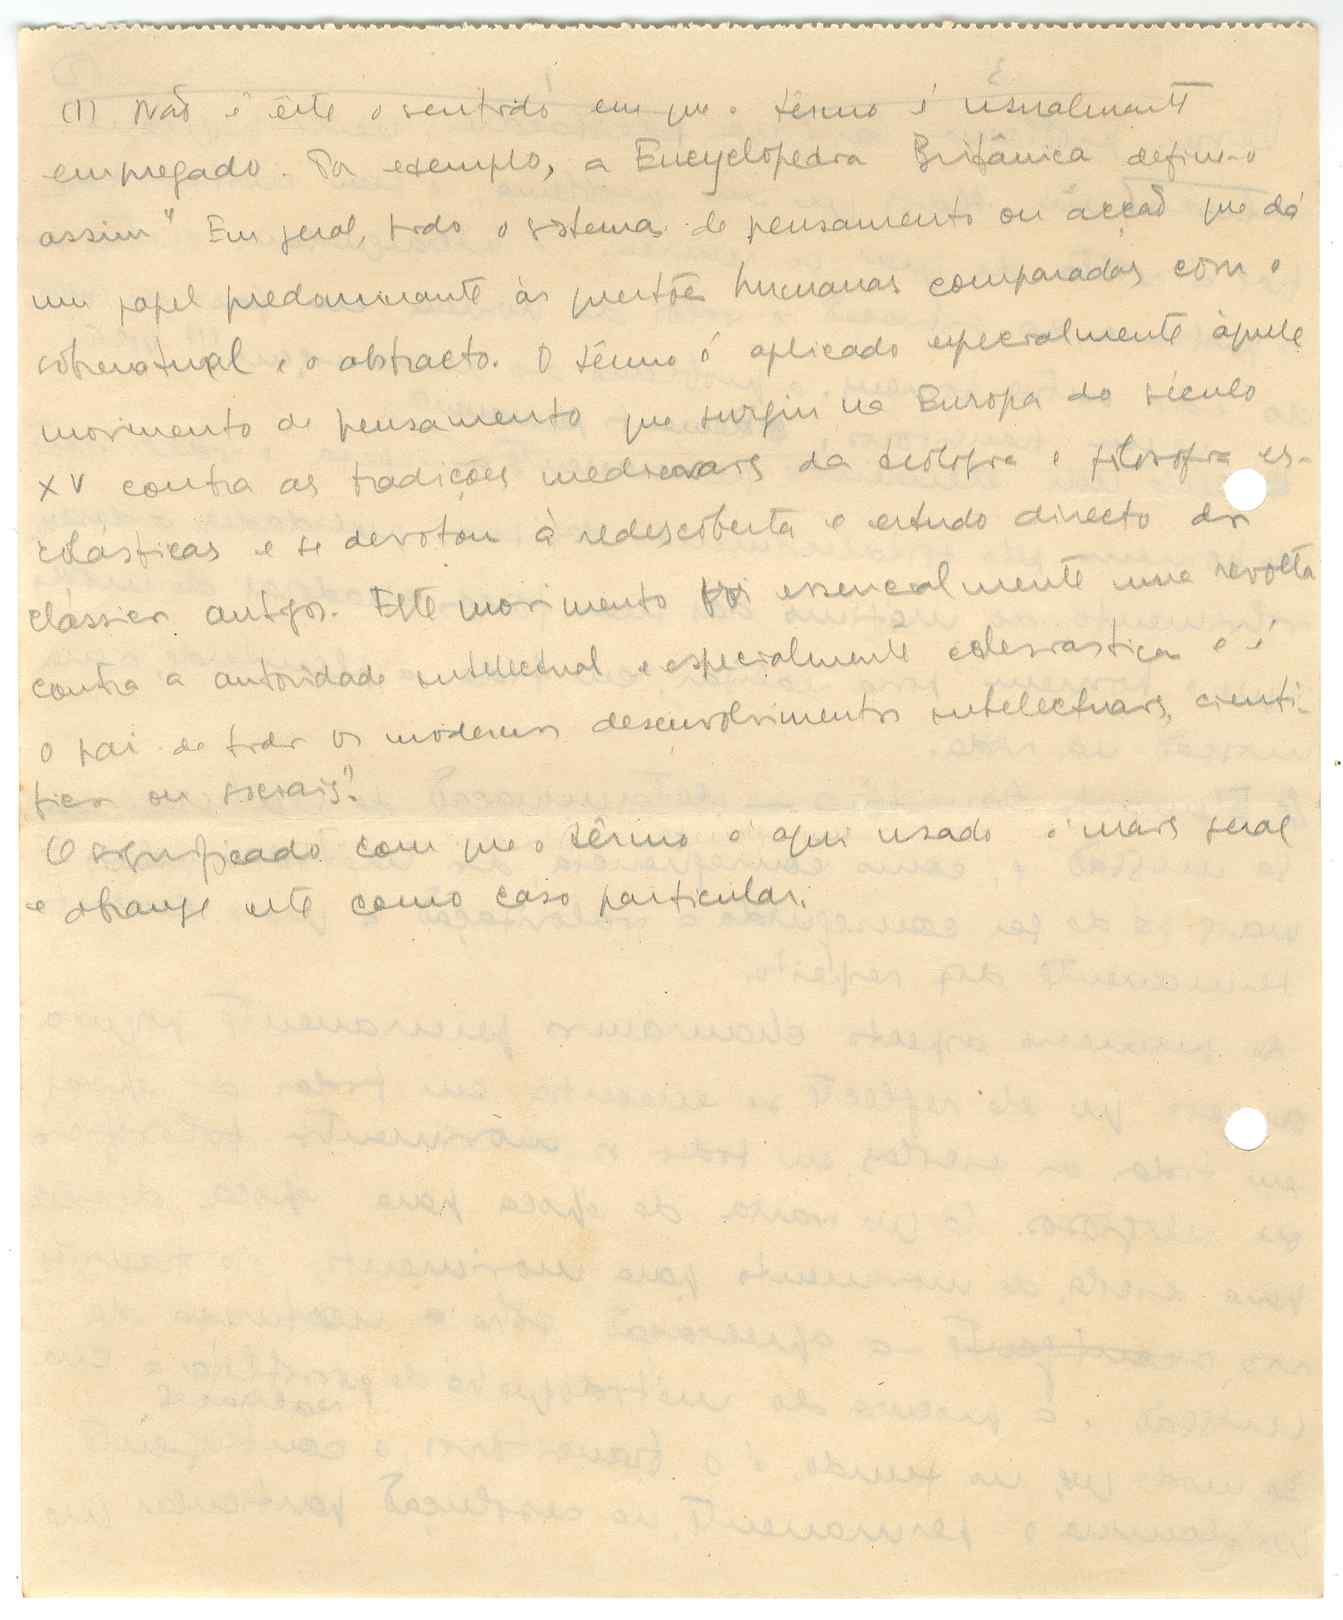 (1) Não é êste o sentido em que o têrmo é usualmente
empregado. Por exemplo, a Encyclopedia Britânica define-o
assim "Em geral, todo o sistema de pensamento ou acção que dá
um papel predominante às questões humanas comparadas com o
sobrenatural e o abstracto. O têrmo é aplicado especialmente àquele
movimento de pensamento que surgiu na Europa do século
XV contra as tradições medievais da teologia e filosofia es-
colásticas e se devotou à redescoberta e estudo directo dos
clássicos antigos. Este movimento foi essencialmente uma revolta
contra a autoridade intelectual e especialmente eclesiastica e é
o pai de todos os modernos desenvolvimentos intelectuais, cientí-
ficos ou sociais".
O significado com que o têrmo é aqui usado é mais geral
e abrange este como caso particular.